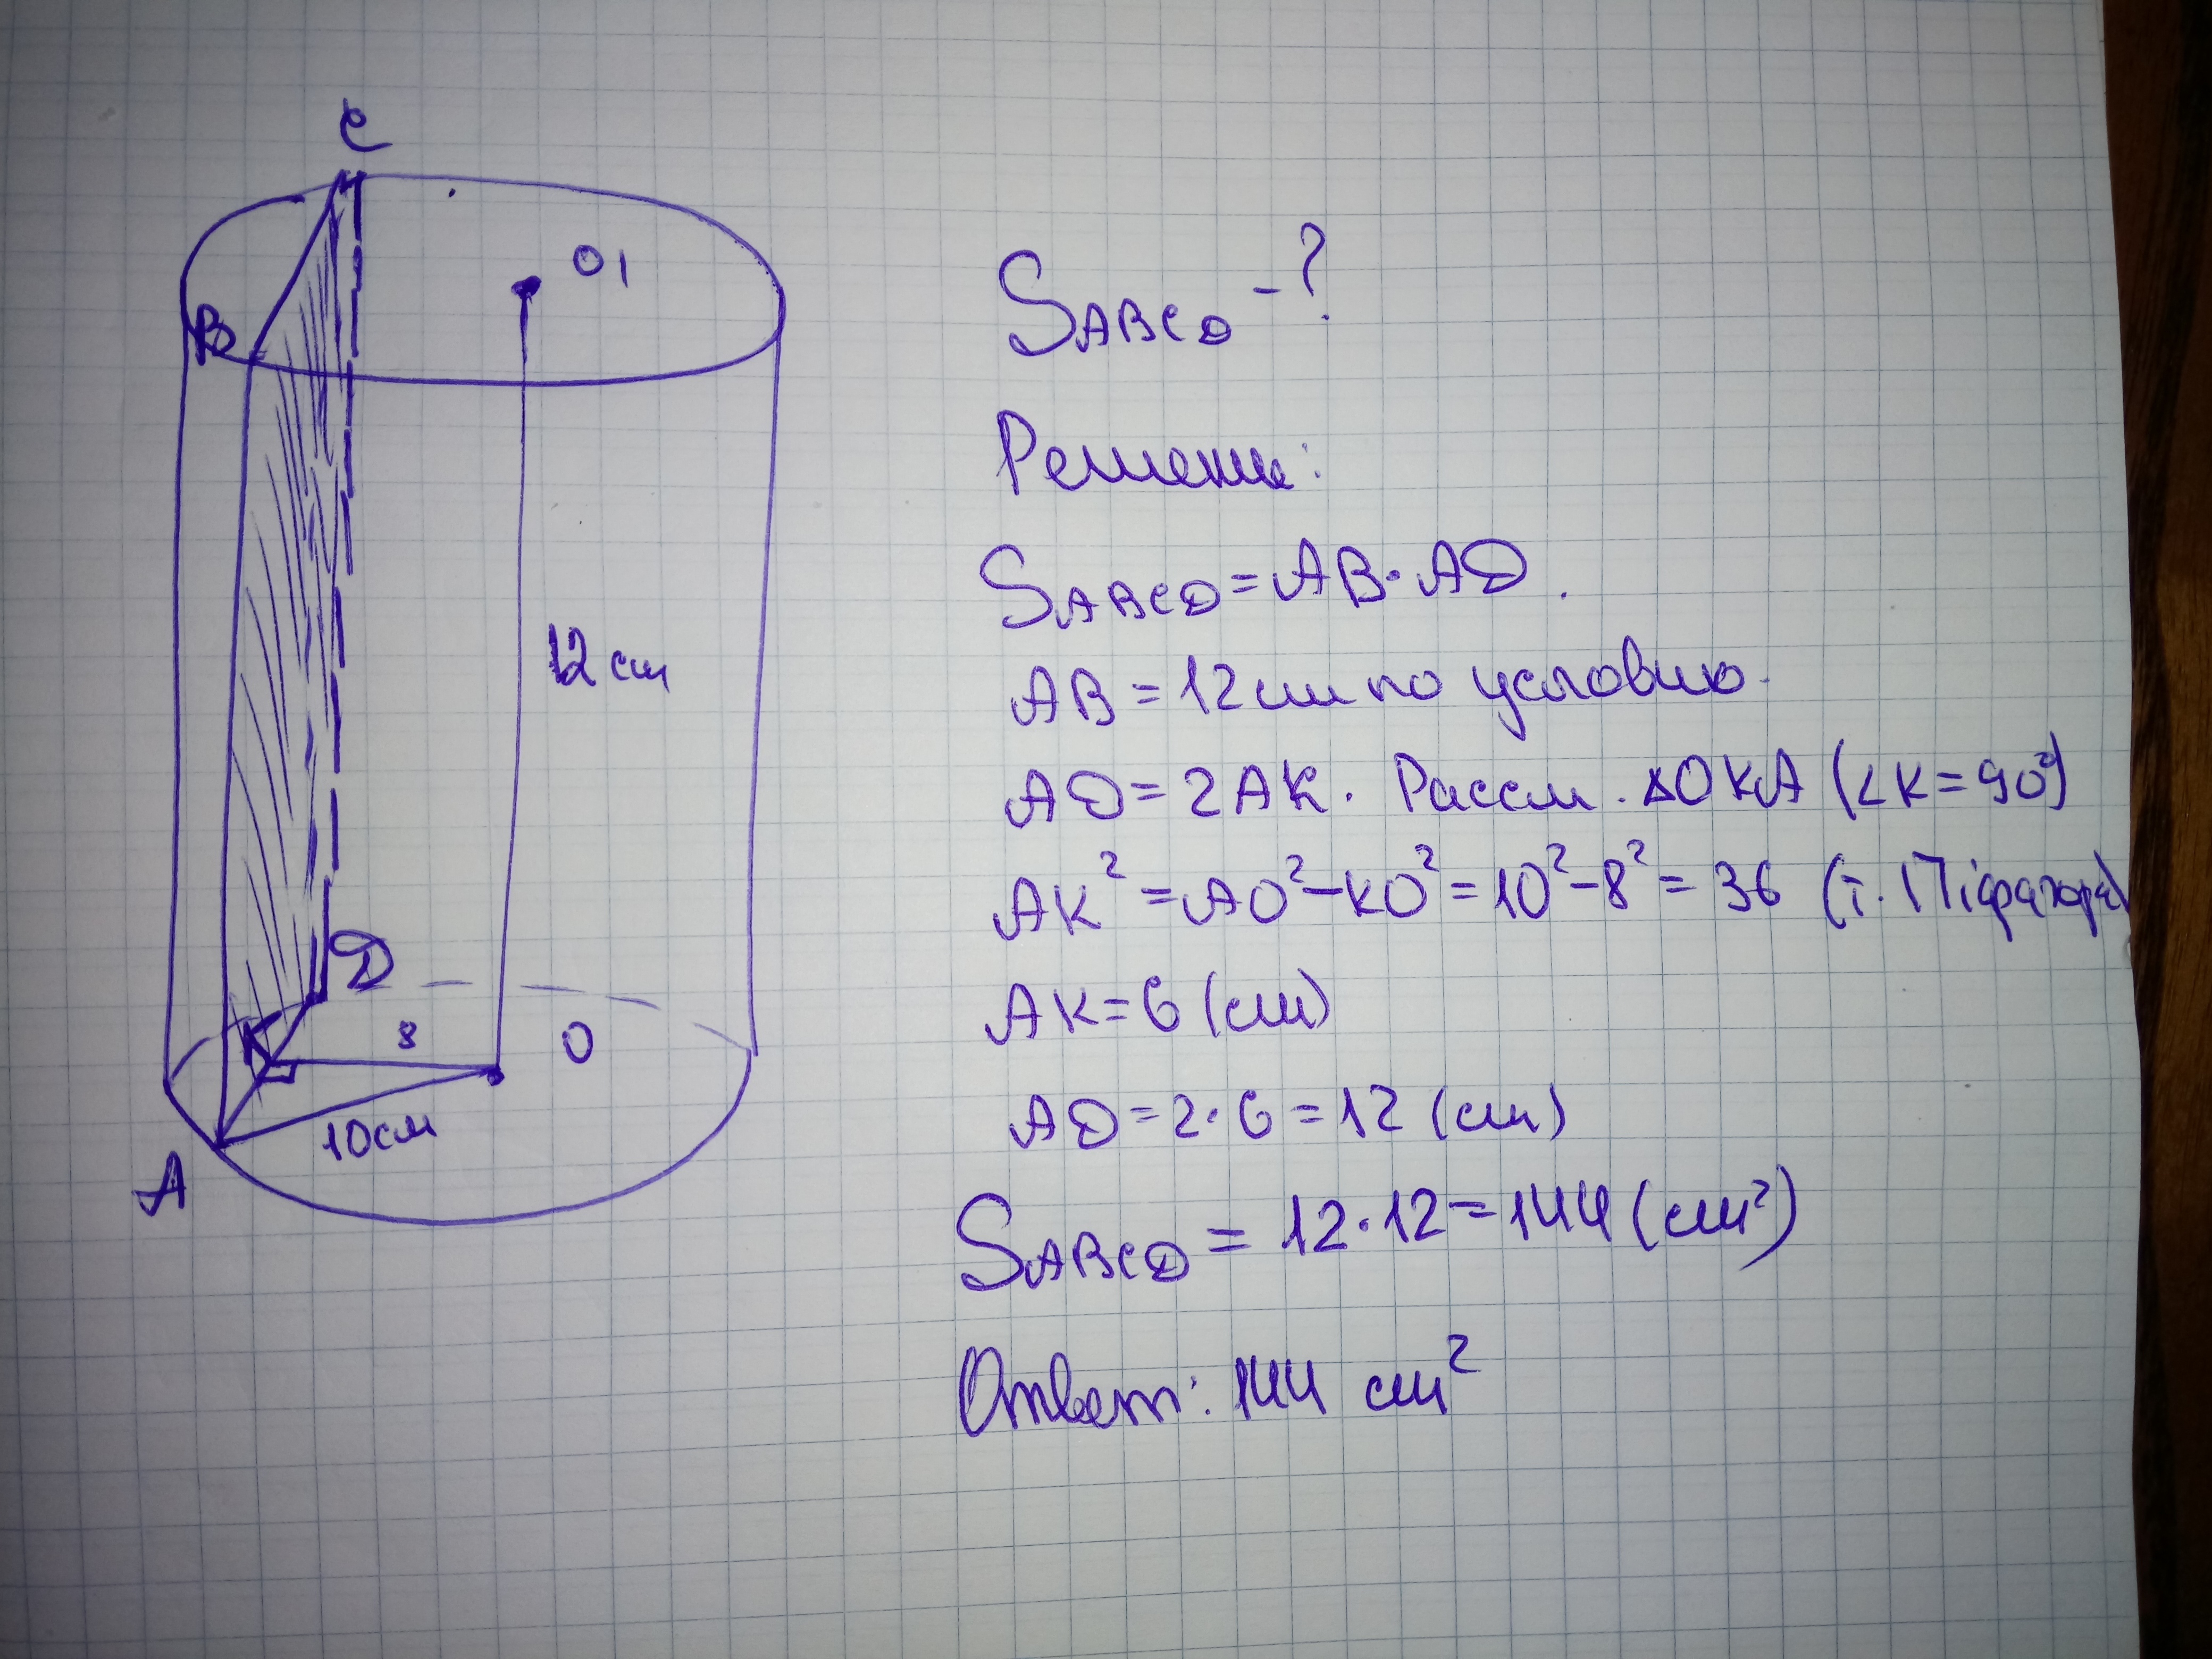 C
O₁
B
12 см
D
K
8
O
10 см
A
S ABCD - ?
Решение:
S ABCD = AB · AD.
AB = 12 см по условию.
AD = 2AK. Рассм. ΔOKA (∠K = 90°)
AK² = AO² – KO² = 10² – 8² = 36 (т. Піфагора)
AK = 6 (см)
AD = 2 · 6 = 12 (см)
S ABCD = 12 · 12 = 144 (см²)
Ответ: 144 см²